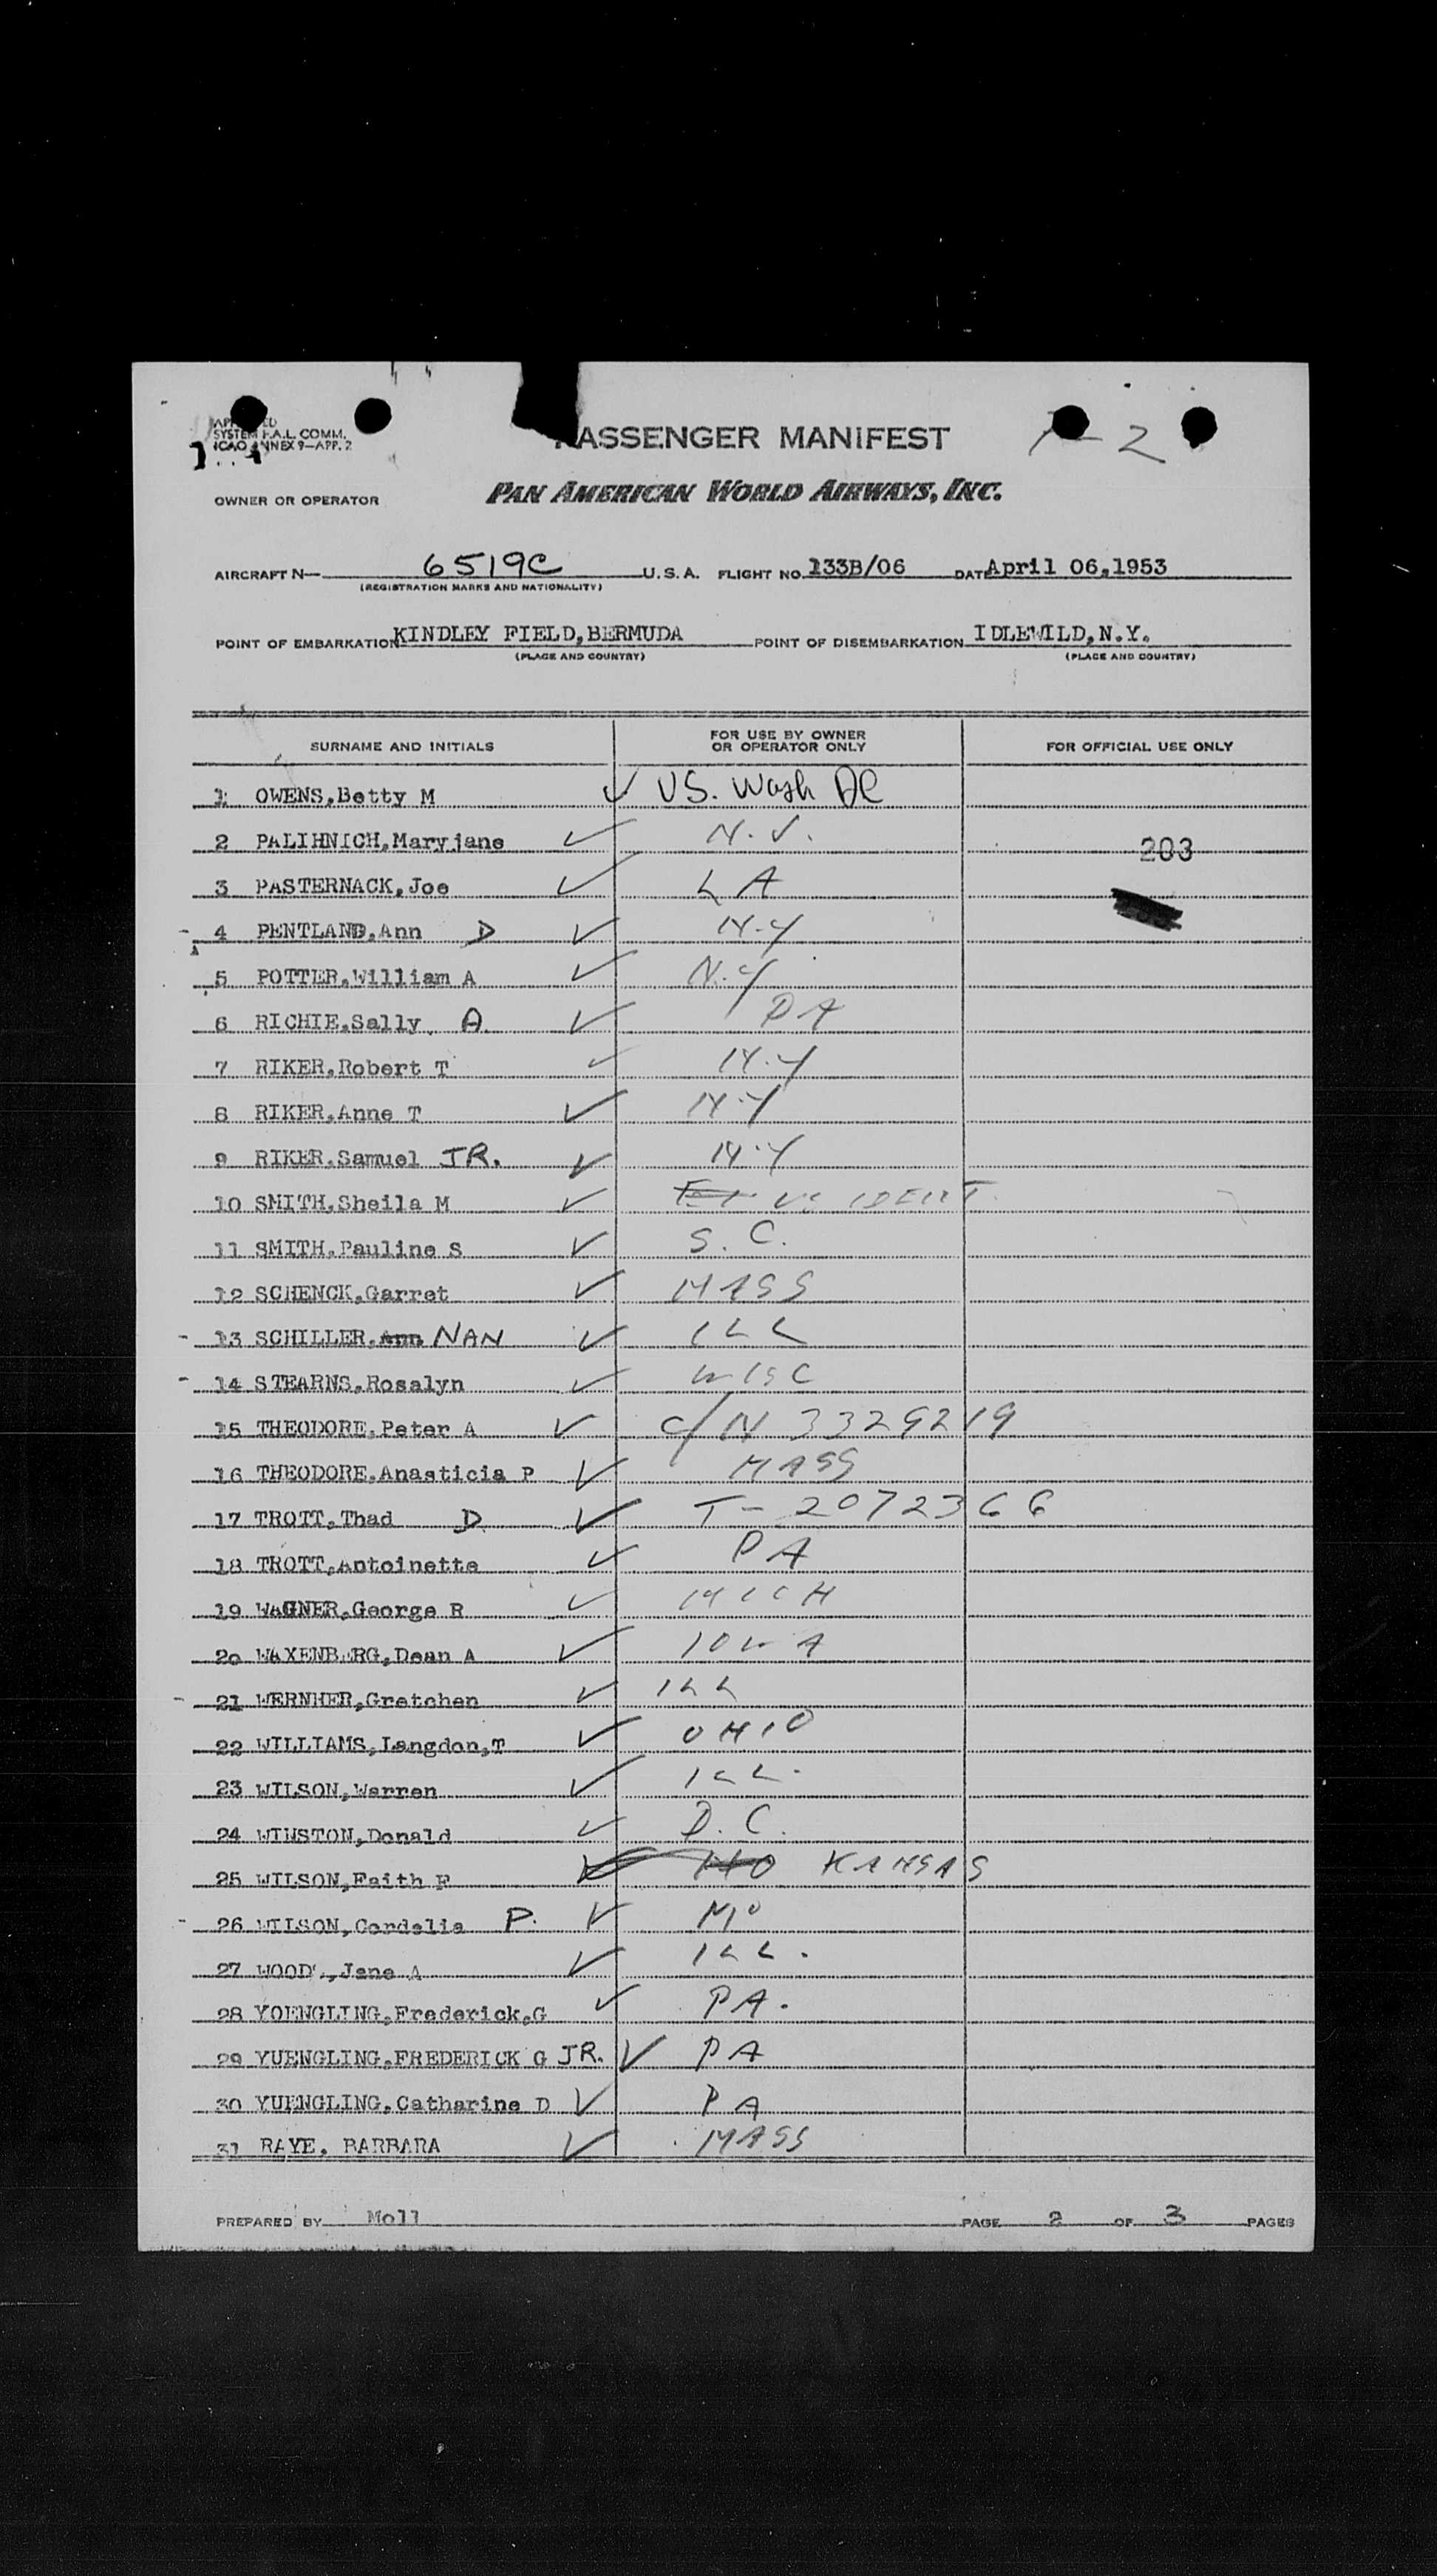 SYSTEM F.A.L. COMM.
ICAO ANNEX 9—APP. 2
PASSENGER MANIFEST
2
OWNER OR OPERATOR PAN AMERICAN WORLD AIRWAYS, INC.
AIRCRAFT N— 6519C U.S.A. FLIGHT NO. 133B/06 DATE April 06,1953
(REGISTRATION MARKS AND NATIONALITY)
POINT OF EMBARKATION KINDLEY FIELD,BERMUDA POINT OF DISEMBARKATION IDLEWILD,N.Y.
(PLACE AND COUNTRY) (PLACE AND COUNTRY)
SURNAME AND INITIALS FOR USE BY OWNER OR OPERATOR ONLY FOR OFFICIAL USE ONLY
1 OWENS,Betty M ✓ US. Wash DC
2 PALIHNICH,Maryjane ✓ N.J. 203
3 PASTERNACK,Joe ✓ LA
4 PENTLAND,Ann D ✓ N.Y
5 POTTER,William A ✓ N.Y
6 RICHIE,Sally A ✓ PA
7 RIKER,Robert T ✓ N.Y
8 RIKER,Anne T ✓ N.Y
9 RIKER,Samuel JR. ✓ N.Y
10 SMITH,Sheila M ✓ US IDENT
11 SMITH,Pauline S ✓ S.C.
12 SCHENCK,Garret ✓ MASS
13 SCHILLER,Ann NAN ✓ ILL
14 STEARNS,Rosalyn ✓ WISC
15 THEODORE,Peter A ✓ C/N 3329219
16 THEODORE,Anasticia P ✓ MASS
17 TROTT,Thad D ✓ T-2072366
18 TROTT,Antoinette ✓ PA
19 WAGNER,George R ✓ MICH
20 WAXENBERG,Dean A ✓ IOWA
21 WERNHER,Gretchen ✓ ILL
22 WILLIAMS,Langdon,T ✓ OHIO
23 WILSON,Warren ✓ ILL.
24 WINSTON,Donald ✓ D.C.
25 WILSON,Faith F ✓ MO KANSAS
26 WILSON,Cordelia P. ✓ MO
27 WOOD,Jane A ✓ ILL.
28 YOENGLING,Frederick,G ✓ PA.
29 YUENGLING,FREDERICK G JR. ✓ PA
30 YUENGLING,Catharine D ✓ PA
31 RAYE, BARBARA ✓ MASS
PREPARED BY Moll PAGE 2 OF 3 PAGES